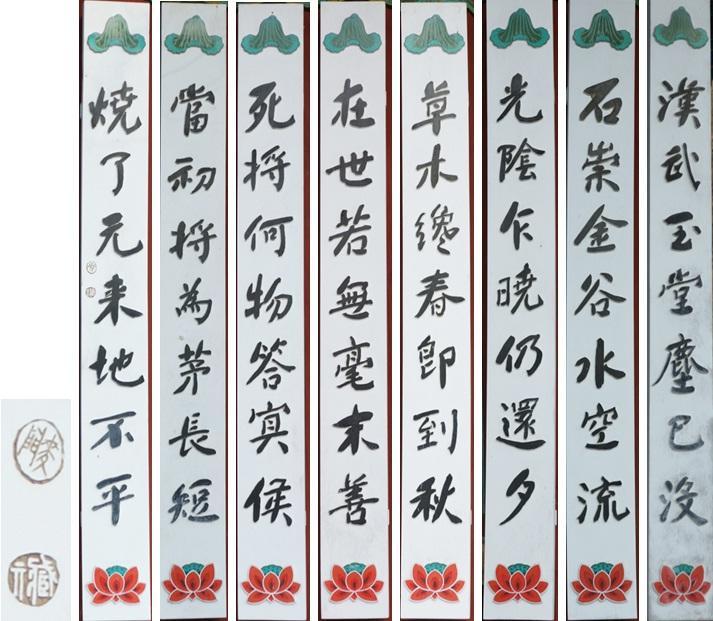 漢武玉堂塵已沒
石崇金谷水空流
光陰乍曉仍還夕
草木纔春即到秋
在世若無毫末善
死將何物答冥候
當初將為茅長短
燒了元來地不平